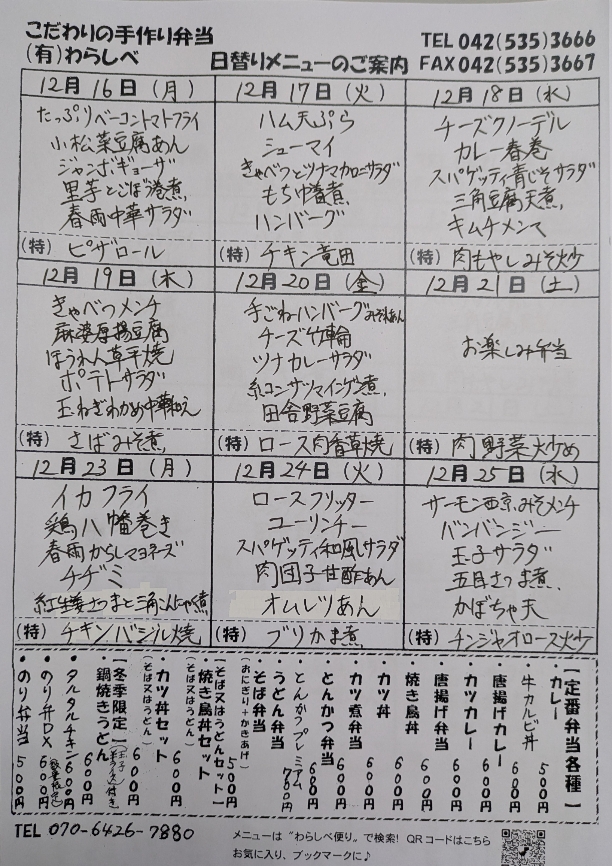 こだわりの手作り弁当
(有)わらしべ
日替りメニューのご案内
TEL 042(535)3666
FAX 042(535)3667
12月16日(月)
たっぷりベーコントマトフライ
小松菜豆腐あん
ジャンボギョーザ
里芋とごぼう巻煮
春雨中華サラダ
(特) ピザロール
12月17日(火)
ハム天ぷら
シューマイ
きゃべつとツナマカロニサラダ
もち巾着煮
ハンバーグ
(特) チキン竜田
12月18日(水)
チーズクノーデル
カレー春巻
スパゲッティ青じそサラダ
三角豆腐天煮
キムチメンマ
(特) 肉もやしみそ炒
12月19日(木)
きゃべつメンチ
麻婆厚揚豆腐
ほうれん草平焼
ポテトサラダ
玉ねぎわかめ中華和え
(特) さばみそ煮
12月20日(金)
手ごねハンバーグみそあん
チーズ竹輪
ツナカレーサラダ
糸コンサツマインゲン煮
田舎野菜豆腐
(特) ロース肉香草焼
12月21日(土)
お楽しみ弁当
(特) 肉野菜炒め
12月23日(月)
イカフライ
鶏八幡巻き
春雨からしマヨネーズ
チヂミ
紅生姜さつまと三角こんにゃく煮
(特) チキンバジル焼
12月24日(火)
ロースフリッター
ユーリンチー
スパゲッティ和風サラダ
肉団子甘酢あん
オムレツあん
(特) ブリかま煮
12月25日(水)
サーモン西京みそメンチ
バンバンジー
玉子サラダ
五目さつま煮
かぼちゃ天
(特) チンジャオロース炒
【定番弁当各種】
・カレー 500円
・牛カルビ丼 600円
・唐揚げカレー 600円
・カツカレー 600円
・唐揚げ弁当 600円
・焼き鳥丼 600円
・カツ丼 600円
・カツ煮弁当 600円
・とんかつ弁当 600円
・とんかつプレミアム 700円
・うどん弁当
・そば弁当 500円
(おにぎり+かきあげ)
【そば又はうどんセット】
・焼き鳥丼セット 600円
(そば又はうどん)
・カツ丼セット 600円
(そば又はうどん)
【冬季限定】
・鍋焼きうどん 600円
・タルタルチキン 600円
・のり弁DX 600円
・のり弁当 500円
TEL 070-6426-7880
メニューは“わらしべ便り”で検索! QRコードはこちら
お気に入り、ブックマークに♪